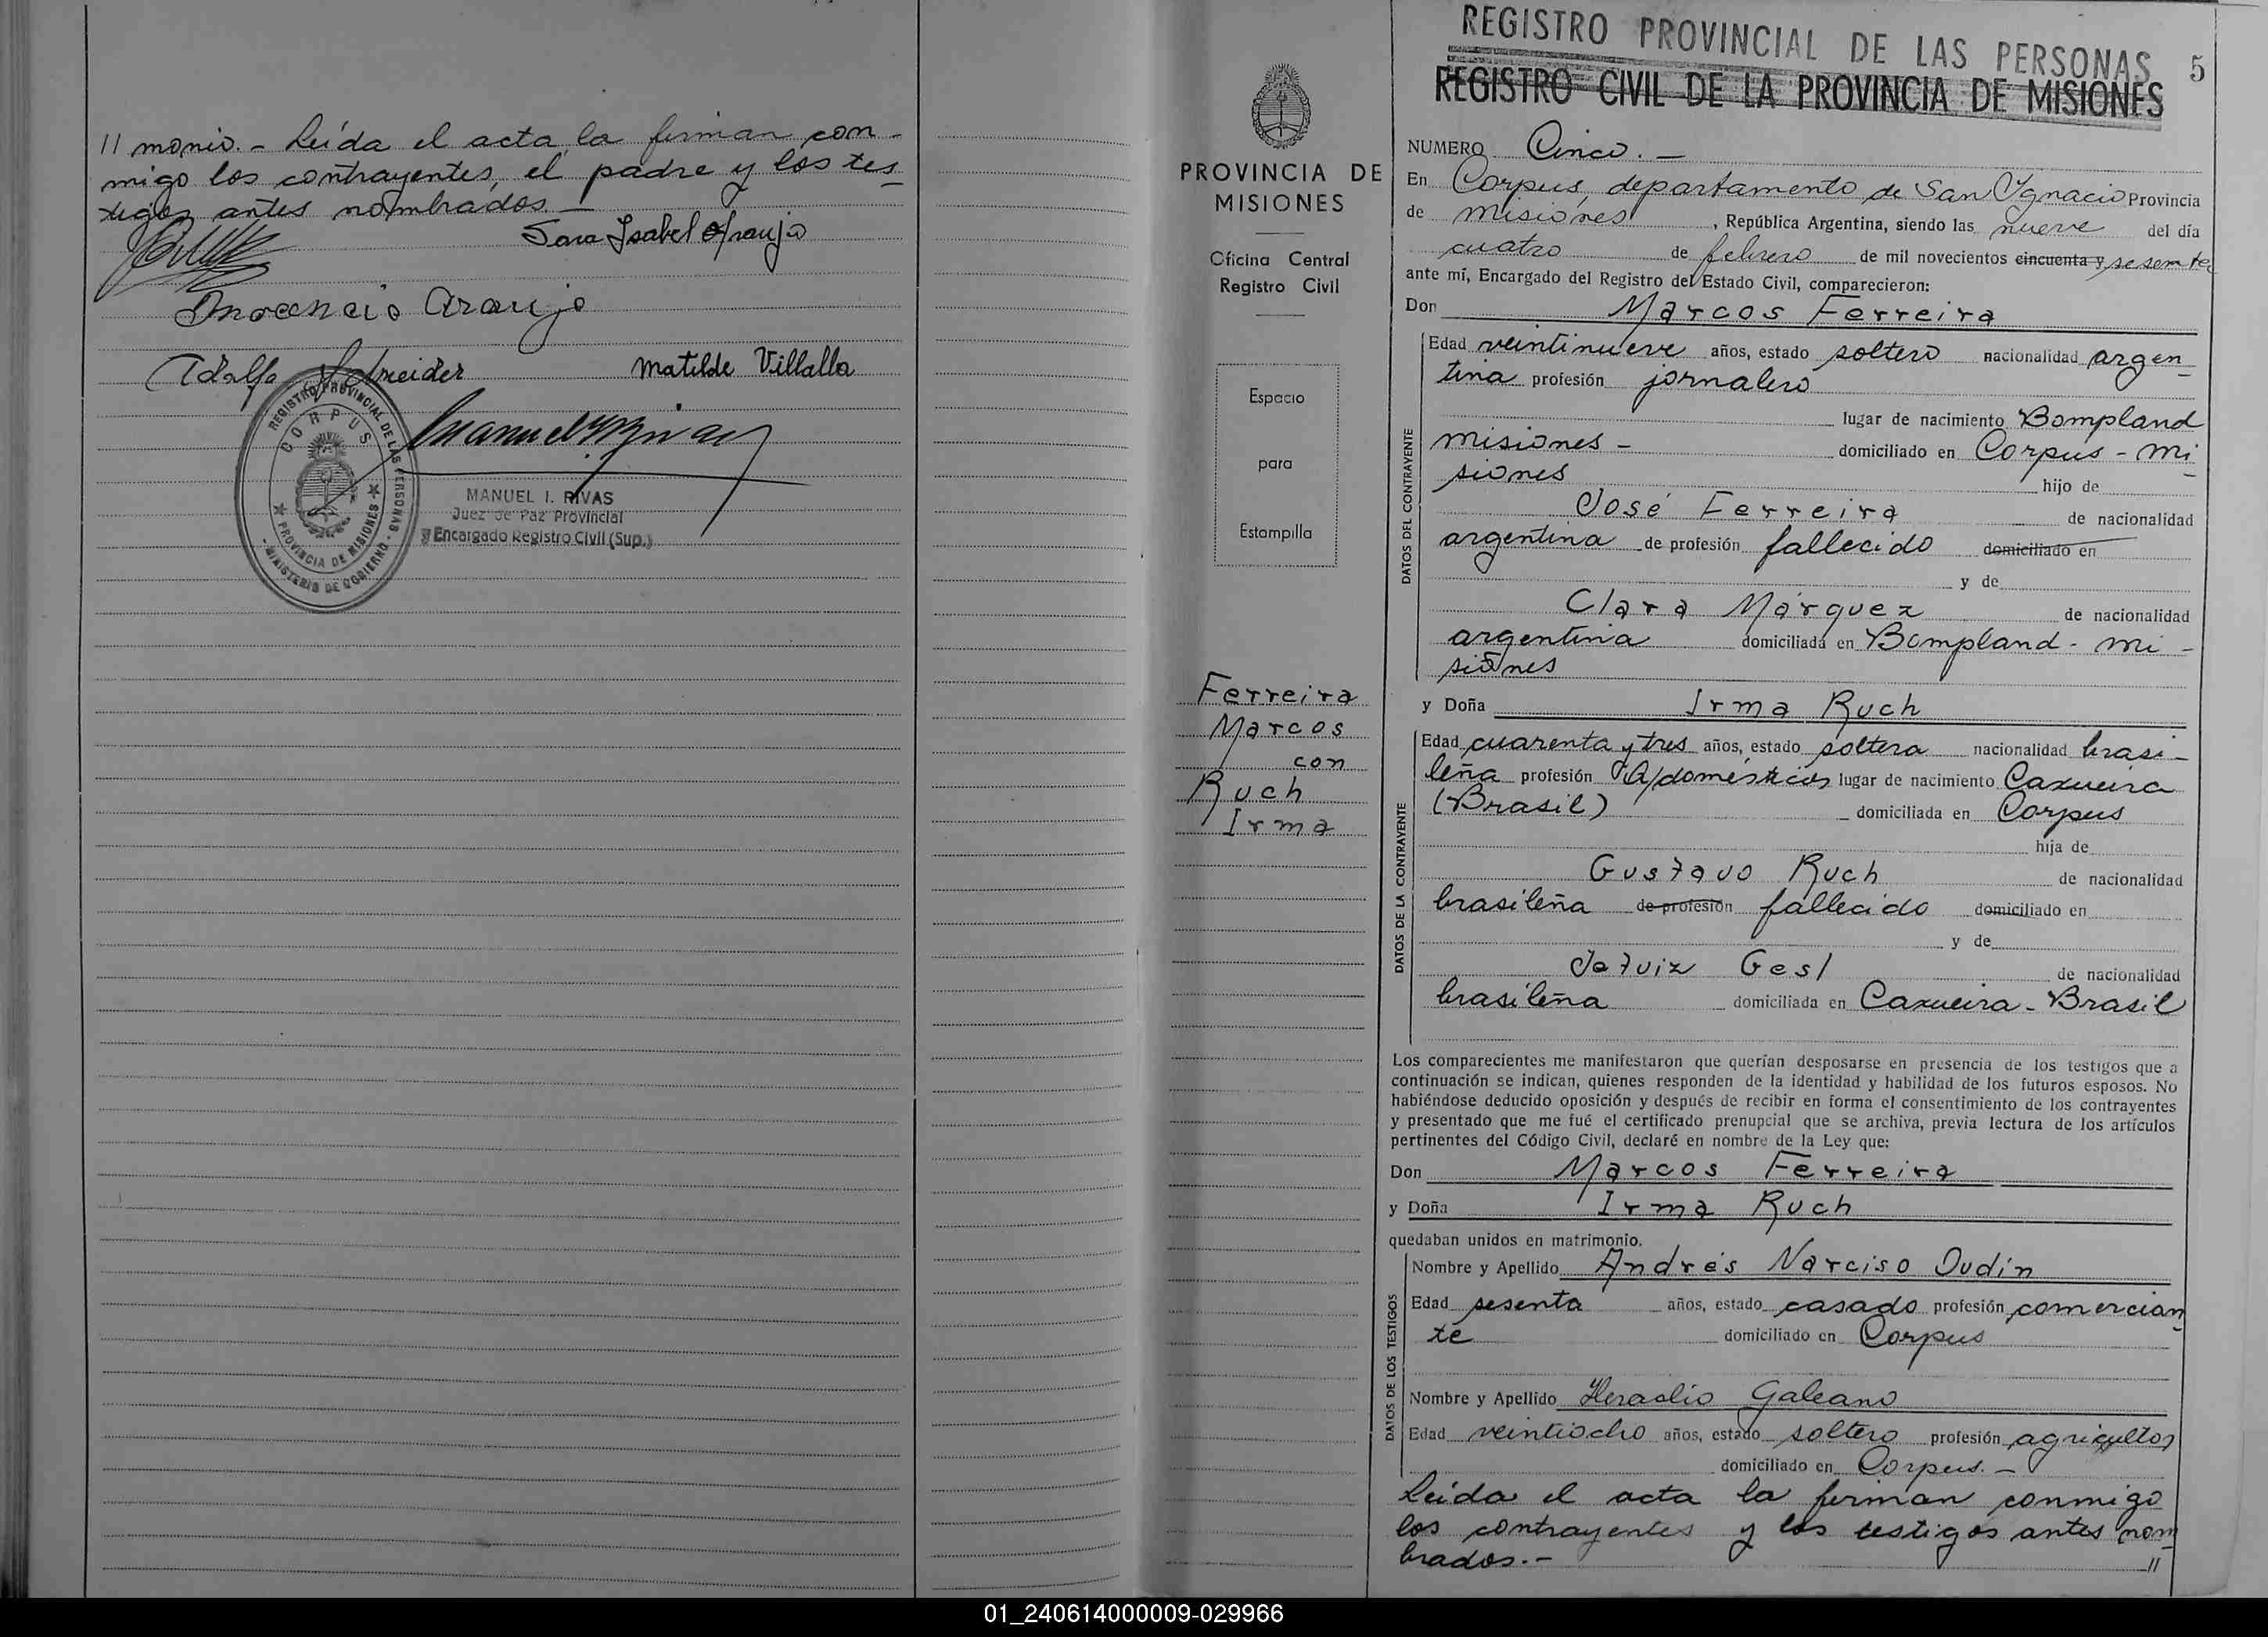 // monio. - Leída el acta la firman con-
migo los contrayentes, el padre y los tes-
tigos antes nombrados -
Sara Isabel Araujo
Inocencio Araujo
Adolfo Schneider Matilde Villalla
REGISTRO PROVINCIAL DE LAS PERSONAS - MINISTERIO DE GOBIERNO -
CORPUS
★ PROVINCIA DE MISIONES ★
MANUEL I. RIVAS
Juez de Paz Provincial
y Encargado Registro Civil (Sup.)
PROVINCIA DE
MISIONES
Oficina Central
Registro Civil
Espacio
para
Estampilla
Ferreira
Marcos
con
Ruch
Irma
REGISTRO PROVINCIAL DE LAS PERSONAS
5
REGISTRO CIVIL DE LA PROVINCIA DE MISIONES
NUMERO Cinco. -
En Corpus, departamento de San Ignacio Provincia
de Misiones, República Argentina, siendo las nueve del día
cuatro de febrero de mil novecientos cincuenta y sesenta
ante mí, Encargado del Registro del Estado Civil, comparecieron:
Don Marcos Ferreira
DATOS DEL CONTRAYENTE
Edad veintinueve años, estado soltero nacionalidad argen-
tina profesión jornalero
lugar de nacimiento Bompland
misiones - domiciliado en Corpus - Mi-
siones hijo de
José Ferreira de nacionalidad
argentina de profesión fallecido domiciliado en
y de
Clara Márquez de nacionalidad
argentina domiciliada en Bompland - Mi-
siones
y Doña Irma Ruch
DATOS DE LA CONTRAYENTE
Edad cuarenta y tres años, estado soltera nacionalidad brasi-
leña profesión Q/domésticos lugar de nacimiento Caxueira
(Brasil) domiciliada en Corpus
hija de
Gustavo Ruch de nacionalidad
brasileña de profesión fallecido domiciliado en
y de
Jatuiz Gesl de nacionalidad
brasileña domiciliada en Caxueira - Brasil
Los comparecientes me manifestaron que querían desposarse en presencia de los testigos que a
continuación se indican, quienes responden de la identidad y habilidad de los futuros esposos. No
habiéndose deducido oposición y después de recibir en forma el consentimiento de los contrayentes
y presentado que me fué el certificado prenupcial que se archiva, previa lectura de los artículos
pertinentes del Código Civil, declaré en nombre de la Ley que:
Don Marcos Ferreira
y Doña Irma Ruch
quedaban unidos en matrimonio.
DATOS DE LOS TESTIGOS
Nombre y Apellido Andrés Narciso Oudín
Edad sesenta años, estado casado profesión comercian-
te domiciliado en Corpus
Nombre y Apellido Heraclio Galeano
Edad veintiocho años, estado soltero profesión agricultor
domiciliado en Corpus. -
Leída el acta la firman conmigo
los contrayentes y los testigos antes nom-
brados. - //
01_240614000009-029966